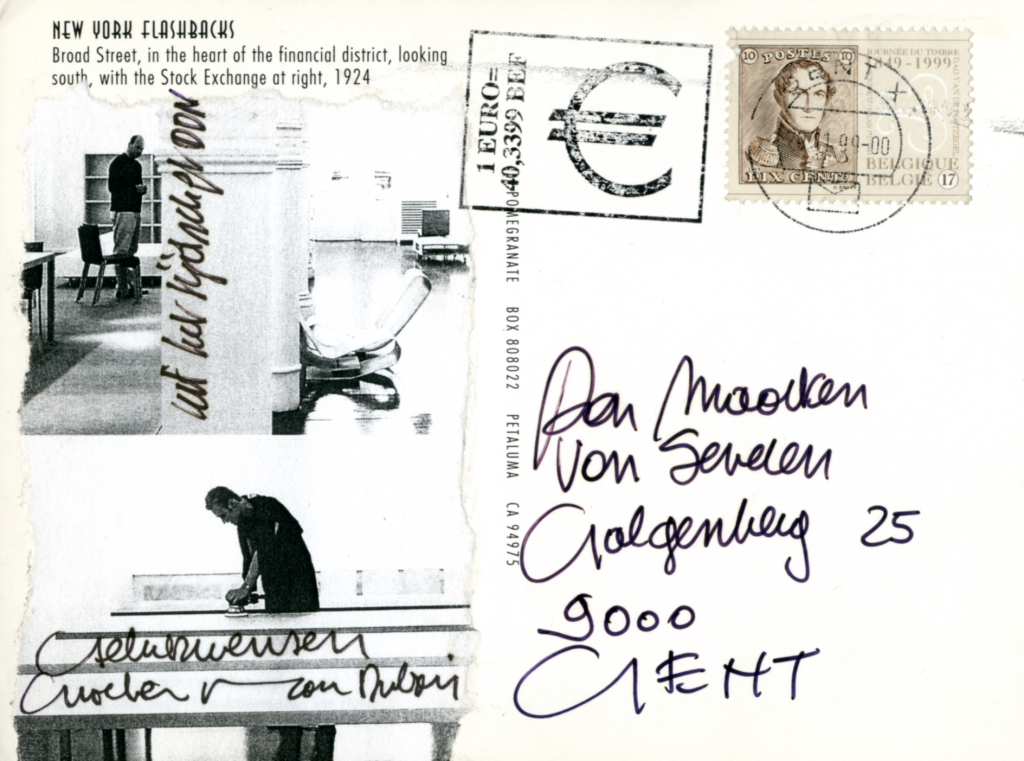 NEW YORK FLASHBACKS
Broad Street, in the heart of the financial district, looking
south, with the Stock Exchange at right, 1924
uit het tijdschrift voor
Gelukwensen
van
1 EURO=
40,3399 BEF
€
POMEGRANATE BOX 808022 PETALUMA CA 94975
10 POSTES 10
DIX CENTS
JOURNÉE DU TIMBRE
1849-1999
BELGIQUE
BELGIË 17
GENT
99-00
Aan Maarten
Van Severen
Galgenberg 25
9000
GENT